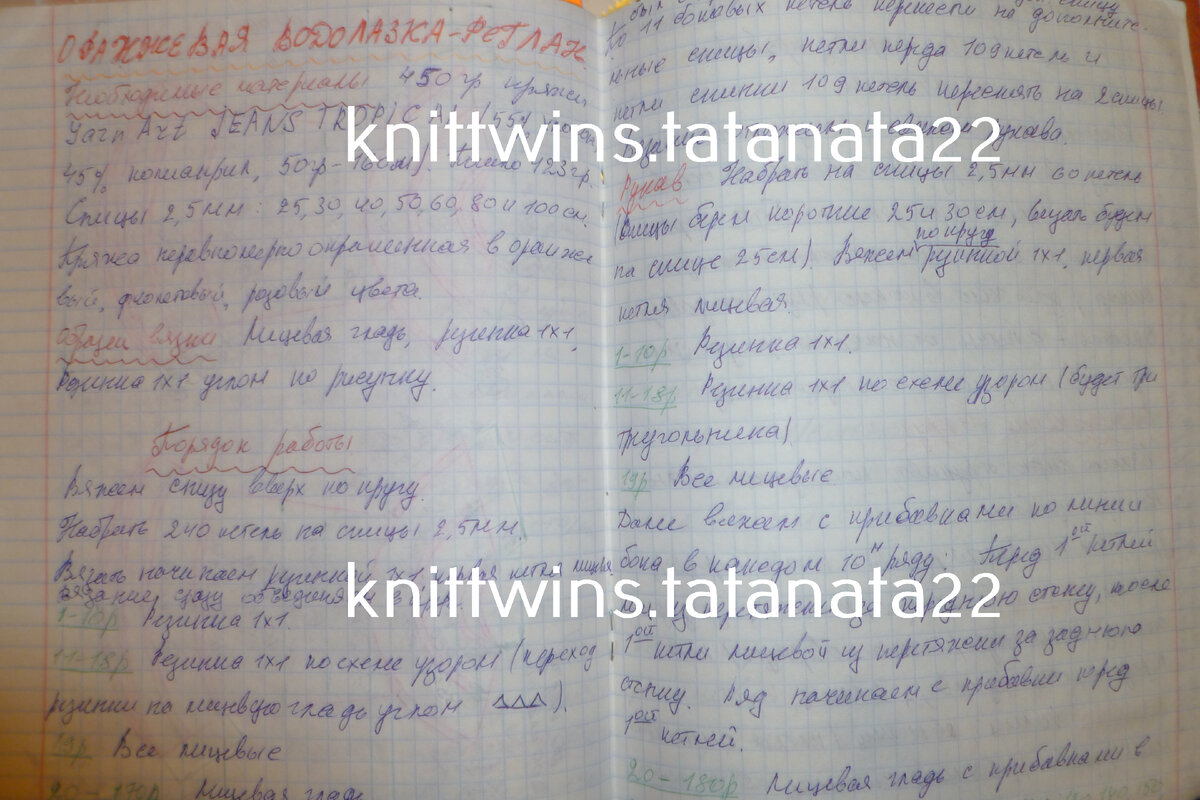 ОРАНЖЕВАЯ ВОДОЛАЗКА-РЕГЛАН
Необходимые материалы 450гр пряжи
Yarn Art JEANS TROPICAL (55%
45% полиакрил, 50гр-160м). Пошло 423гр.
Спицы 2,5мм: 25,30,40,50,60,80 и 100см.
Пряжа неравномерно окрашенная в оранже
вый, фиолетовый, розовый цвета.
Образец вязки Лицевая гладь, резинка 1х1,
Резинка 1х1 углом по рисунку.
Порядок работы
Вяжем снизу вверх по кругу.
Набрать 240 петель на спицы 2,5мм.
Вязать начинаем резинкой 1х1 первая петля лицевая
вязание сразу объединяем в круг.
1-10р Резинка 1х1.
11-18р Резинка 1х1 по схеме узором (переход
резинки на лицевую гладь углом ΔΔΔ).
19р Все лицевые
20-170р Лицевая гладь
По 11 боковых петель перенести на дополните-
льные спицы, петли перда 109 петель и
петли спинки 109 петель переснять на 2 спицы.
рукава.
Рукав Набрать на спицы 2,5мм 60 петель
(Спицы берем короткие 25 и 30см, вязать будем
на спице 25см). Вяжем по кругу резинкой 1х1, первая
петля лицевая.
1-10р Резинка 1х1.
11-18р Резинка 1х1 по схеме узором (будет три
треугольника)
19р Все лицевые
Далее вяжем с прибавками по линии
бока в каждом 10м ряду: Перед 1ой петлей
из перетяжки за переднюю стенку, после
1ой петли лицевой из перетяжки за заднюю
стенку. Ряд начинаем с прибавки перед
1ой петлей.
20-180р Лицевая гладь с прибавками в
knittwins.tatanata22
knittwins.tatanata22